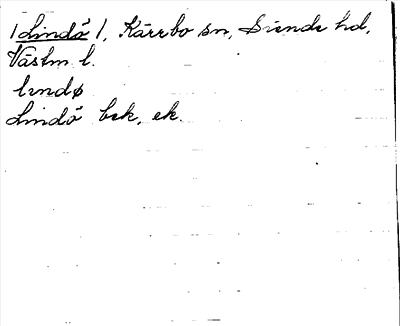 /Lindö/, Kärrbo sn, Siende hd,
Västm l.
lındø
Lindö bek. ek.